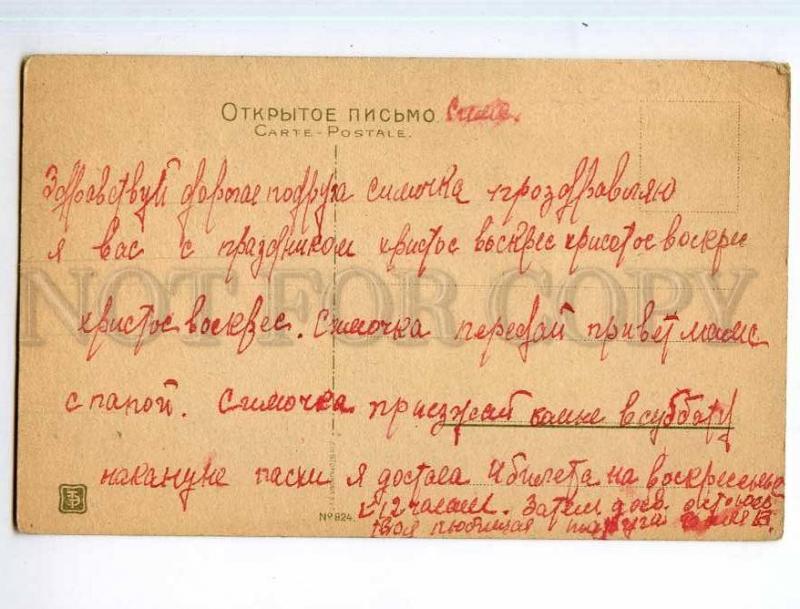 ОТКРЫТОЕ ПИСЬМО. Симе.
CARTE-POSTALE.
Здравствуй дорогае подруга симочка проздравляю
я вас с праздником христос воскрес христос воскрес
христос воскрес. Симочка передай привет маме
с папой. Симочка приезжай комне в субботу
накануне пасхи я достала 4 билета на воскресенье
к 12 часам. Затем досв.
твоя любимая подруга
№ 824.
NOT FOR COPY